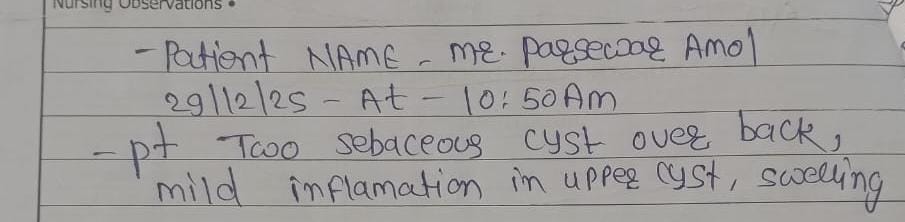 Nursing Observations •
- Patient NAME - Mr. Parsewar Amol
29/12/25 - At - 10:50 Am
- pt Two sebaceous cyst over back,
mild inflamation in upper cyst, swelling